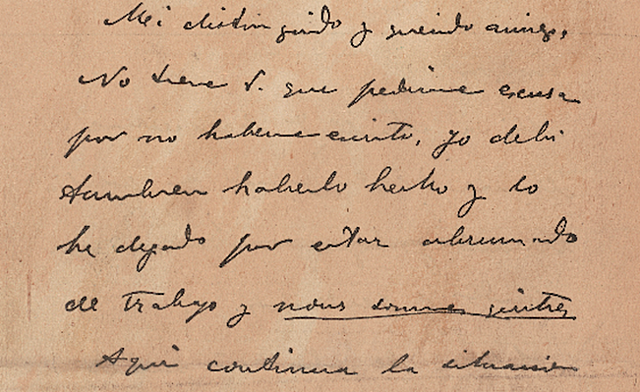 Mi distinguido y querido amigo,
No tiene V. que pedirme escusa
por no haberme escrito, yo debí
tambien haberlo hecho y lo
he dejado por estar abrumado
de trabajo y nous sommes quittes
Aqui continua la situacion